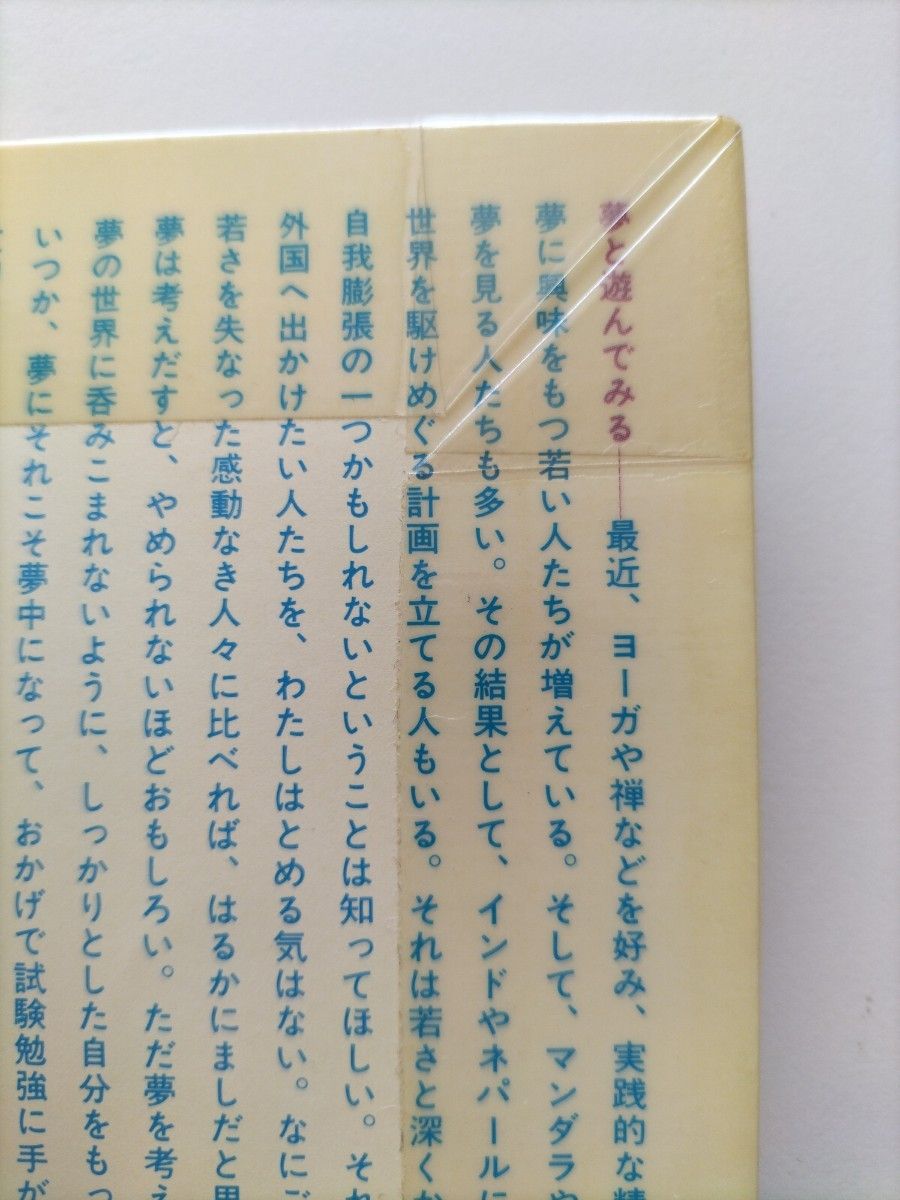 夢と遊んでみる――最近、ヨーガや禅などを好み、実践的な
夢に興味をもつ若い人たちが増えている。そして、マンダラや
夢を見る人たちも多い。その結果として、インドやネパールに
世界を駆けめぐる計画を立てる人もいる。それは若さと深くか
自我膨張の一つかもしれないということは知ってほしい。それ
外国へ出かけたい人たちを、わたしはとめる気はない。なにご
若さを失なった感動なき人々に比べれば、はるかにましだと思
夢は考えだすと、やめられないほどおもしろい。ただ夢を考え
夢の世界に呑みこまれないように、しっかりとした自分をもっ
いつか、夢にそれこそ夢中になって、おかげで試験勉強に手が